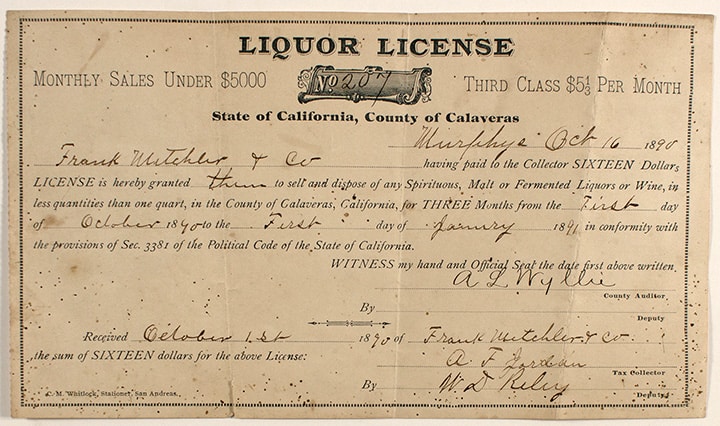 LIQUOR LICENSE
MONTHLY SALES UNDER $5000 No 207 THIRD CLASS $5⅓ PER MONTH
State of California, County of Calaveras
Murphys Oct 16 1890
Frank Mitchler & Co having paid to the Collector SIXTEEN Dollars
LICENSE is hereby granted them to sell and dispose of any Spirituous, Malt or Fermented Liquors or Wine, in
less quantities than one quart, in the County of Calaveras, California, for THREE Months from the First day
of October 1890 to the First day of Janury 1891 in conformity with
the provisions of Sec. 3381 of the Political Code of the State of California.
WITNESS my hand and Official Seal the date first above written
A L Wyllie
County Auditor.
By Deputy
Received October 1st 1890 of Frank Mitchler & Co.
the sum of SIXTEEN dollars for the above License: A. F. Jordan
Tax Collector
By W. D. Riley
Deputy
C. M. Whitlock, Stationer, San Andreas.